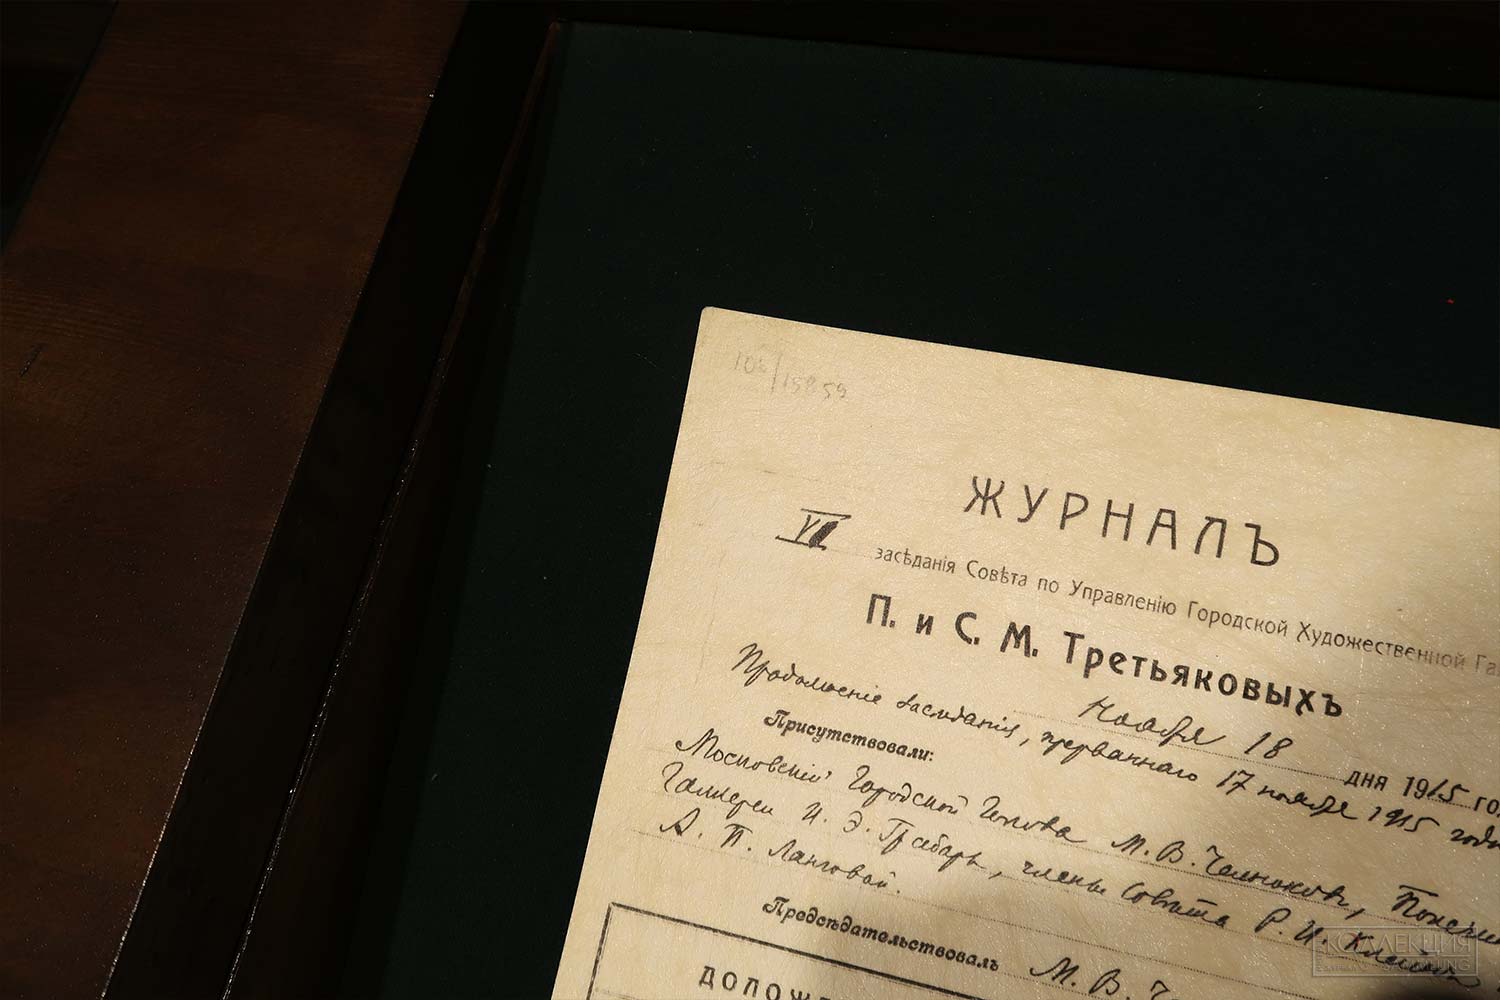 ЖУРНАЛЪ
засѣданія Совѣта по Управленію Городской Художественной Га
П. и С. М. Третьяковыхъ
Ноября 18 дня 1915 го
Продолженіе засѣданія, прерваннаго 17 ноября 1915 года
Присутствовали:
Московскій Городской Голова М. В. Челноковъ, Попечи
Галлереи И. Э. Грабарь, члены Совѣта Р. И. Клейнъ
А. П. Ланговой.
Предсѣдательствовалъ М. В. Че
ДОЛОЖ
КОЛЛЕКЦИЯ